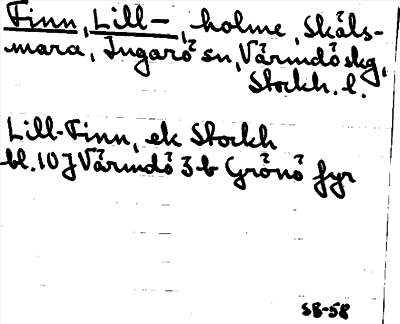 Finn, Lill-, holme, Skäls-
mara, Ingarö sn, Värmdö skg,
Stockh. l.
Lill-Finn, ek Stockh
bl. 10 J Värmdö 3 b Grönö fyr
SB-58